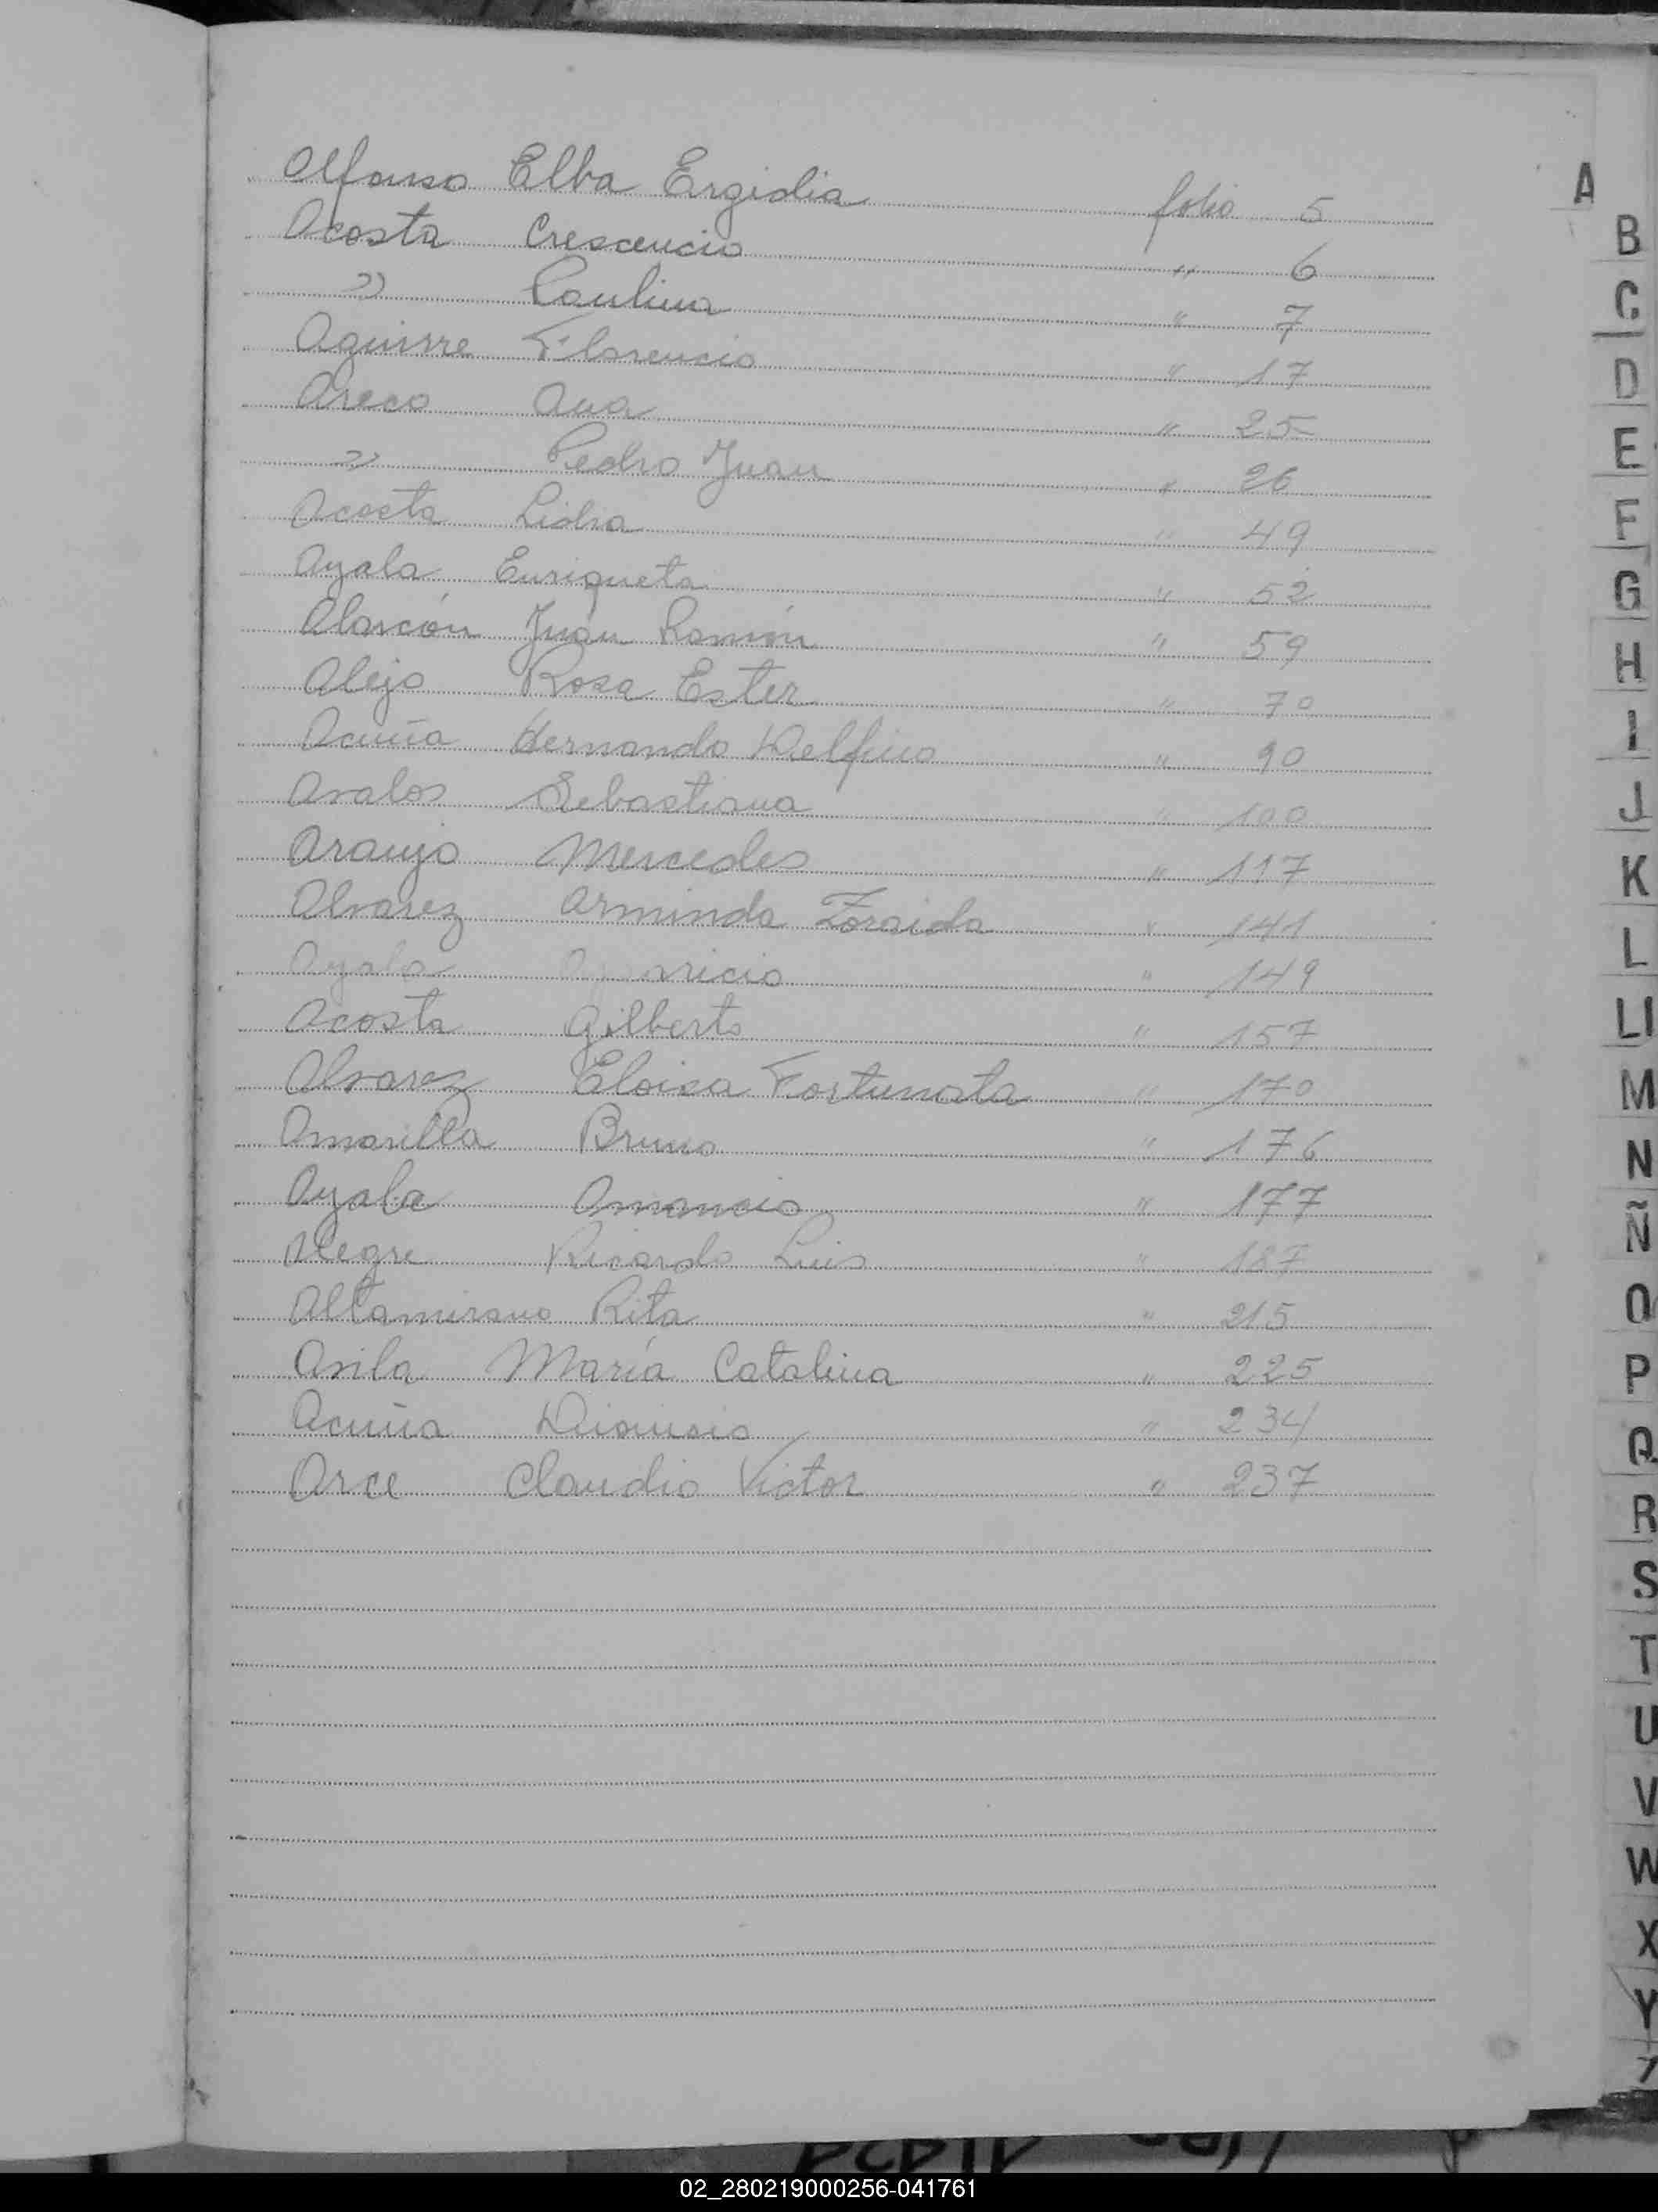 Alfonso Elba Ergidia folio 5
Acosta Crescencio " 6
" Paulina " 7
Aguirre Florencio " 17
Areco Ana " 25
" Pedro Juan " 26
Acosta Lidia " 49
Ayala Enriqueta " 52
Alarcón Juan Ramón " 59
Alejo Rosa Ester " 70
Acuña Hernando Delfino " 90
Avalos Sebastiana " 100
Araujo Mercedes " 117
Alvarez Arminda Zoraida " 141
Ayala Aparicio " 149
Acosta Gilberto " 157
Alvarez Eloisa Fortunata " 170
Amarilla Bruno " 176
Ayala Amancio " 177
Alegre Ricardo Luis " 187
Altamirano Rita " 215
Avila María Catalina " 225
Acuña Dionisio " 234
Arce Claudio Victor " 237
A
B
C
D
E
F
G
H
I
J
K
L
Ll
M
N
Ñ
O
P
Q
R
S
T
U
V
W
X
Y
02_280219000256-041761